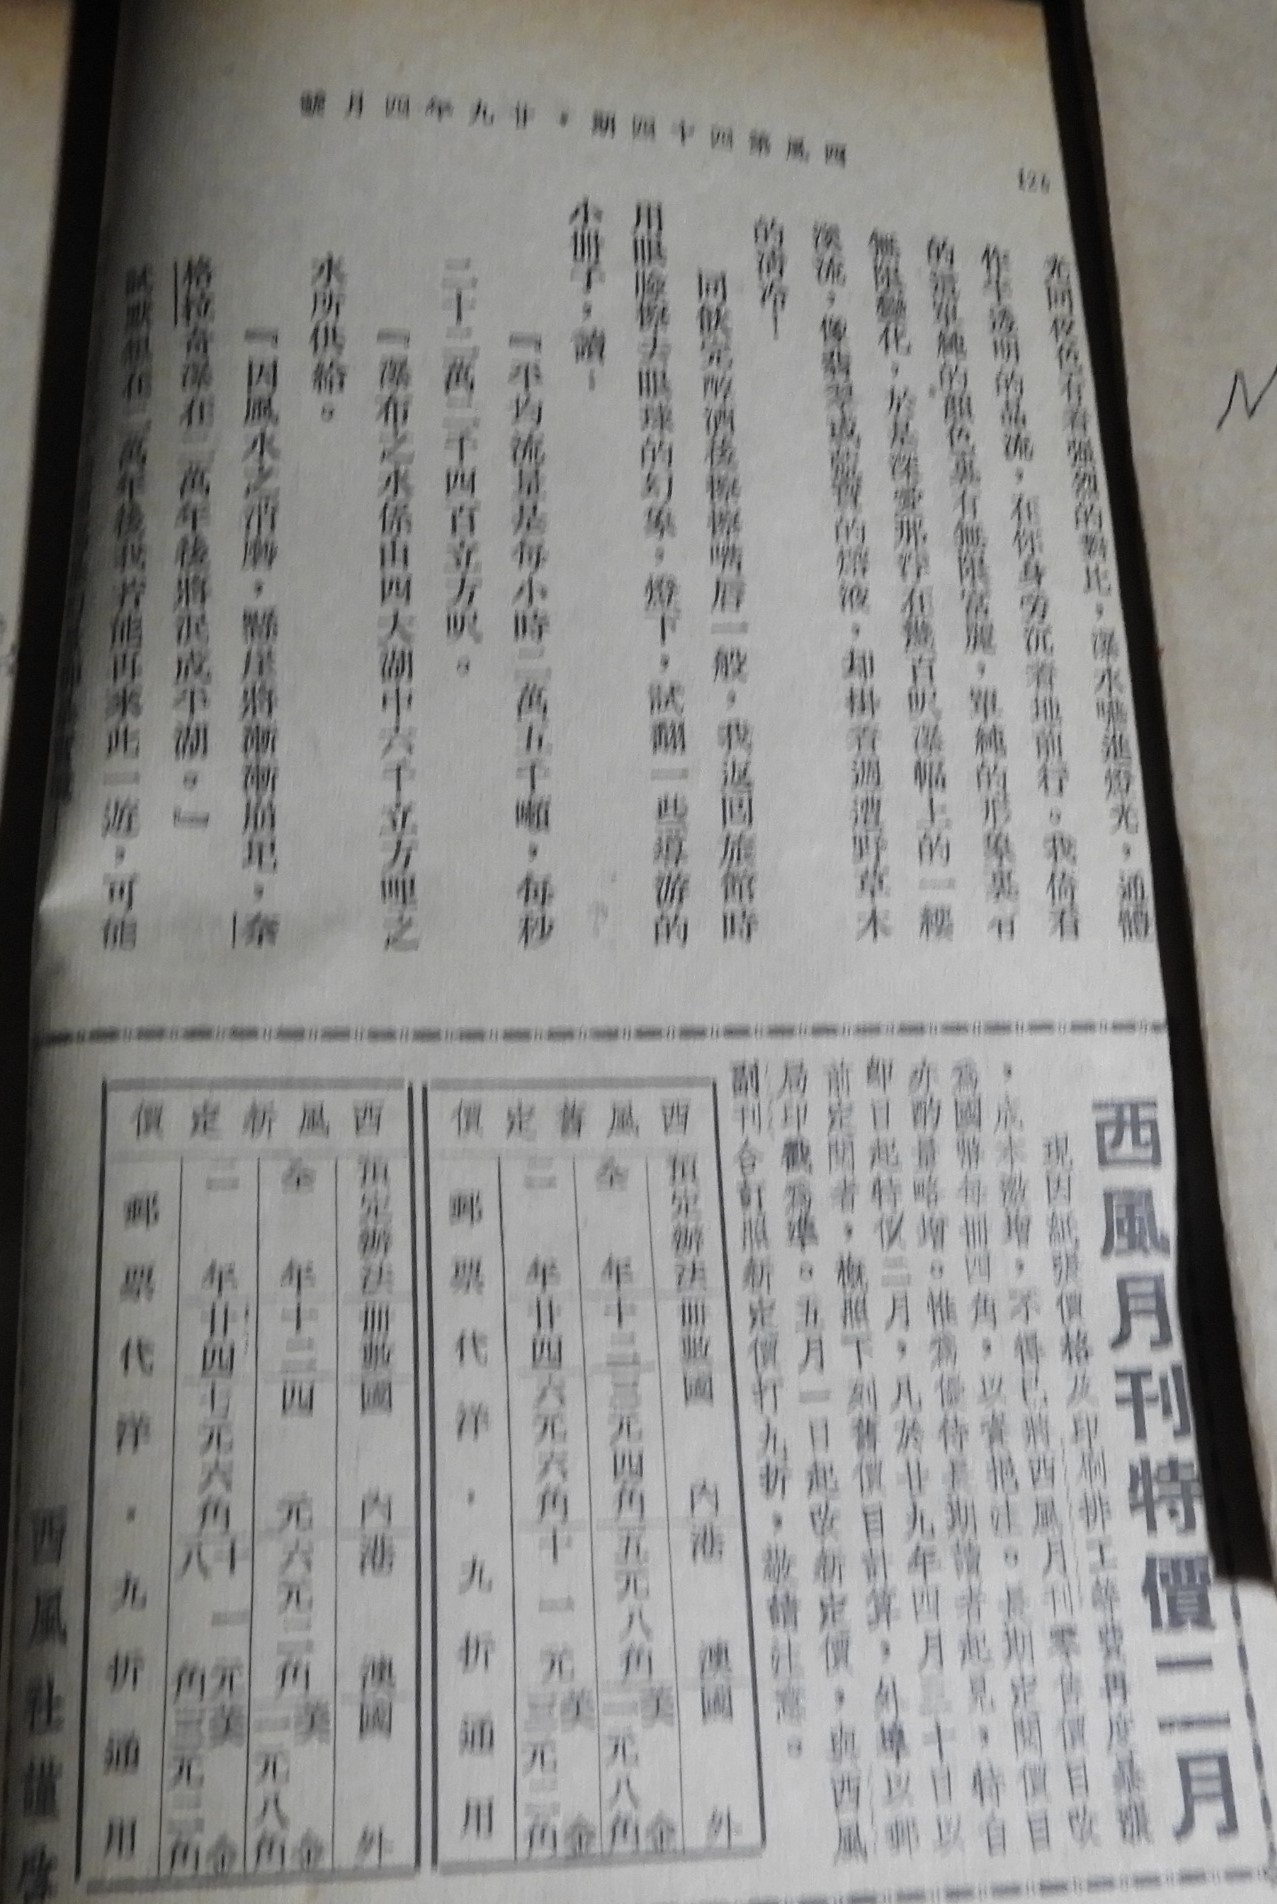 西風第四十四期，廿九年四月號
126
光同夜色有着強烈的對比，瀑水噴進燈光，通體
作半透明的晶流，在你身旁沉着地前行。我倚着
的還是單純的顏色裏有無限富麗，單純的形象裏有
無限變化，於是深愛那浮在幾百呎瀑幅上的一縷
溪流，像翡翠或藍寶的熔液，却掛着過澶野草木
的清冷！
同飲完醇酒後擦擦嘴唇一般，我返回旅館時
用眼瞼擦去眼球的幻象，燈下，試翻一些導游的
小冊子，讀！
『平均流量是每小時二萬五千噸，每秒
二十二萬二千四百立方呎。
『瀑布之水係由四大湖中六千立方哩之
水所供給。
『因風水之消磨，懸崖將漸漸崩圮，奈
格拉奇瀑在二萬年後將泯成平湖。』
試默想在二萬年後我若能再來此一游，可能
西風月刊特價二月
現因紙張價格及印刷排工等費再度暴漲
，成本激增，不得已將西風月刊零售價目改
爲國幣每冊四角，以資挹注。長期定閱價目
亦酌量略增。惟爲優待長期讀者起見，特自
即日起特價二月，凡於廿九年四月三十日以
前定閱者，概照下列舊價目計算，外埠以郵
局印戳爲準。五月一日起改新定價，與西風
副刊合訂照新定價打九折，敬請注意。
西風舊定價
預定辦法 冊數 國內 港澳 國外
全年 十二 三元四角 五元八角 美金一元八角
二年 廿四 六元六角 十一元 美金三元三角
郵票代洋，九折通用
西風新定價
預定辦法 冊數 國內 港澳 國外
全年 十二 四元 六元二角 美金一元八角
二年 廿四 七元六角 十一元八角 美金三元三角
郵票代洋，九折通用
西風社謹啓